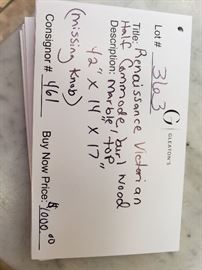 Lot # 363
G
GLEATON'S
Title: Renaissance Victorian
Half Commode / burl wood
Description: Marble top
42" x 14 x 17"
(missing knob)
Consignor # 461
Buy Now Price: $1000.00